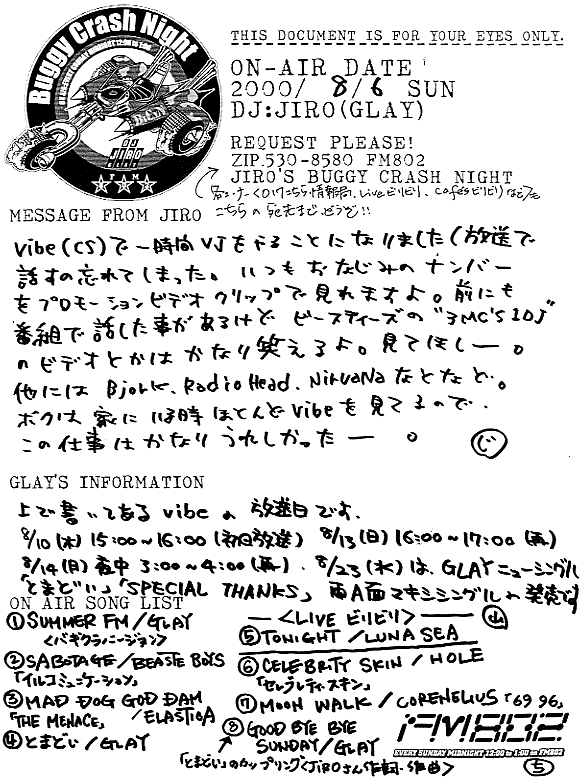 Buggy Crash Night
EVERY SUNDAY MIDNIGHT 12:00 to 1:00
B.C.N
DJ
JIRO
FM
THIS DOCUMENT IS FOR YOUR EYES ONLY.
ON-AIR DATE
2000/ 8/6 SUN
DJ:JIRO(GLAY)
REQUEST PLEASE!
ZIP.530-8580 FM802
JIRO'S BUGGY CRASH NIGHT
こちら情報局、Liveビリビリ、Cafeビリビリなども
こちらの宛先までどうぞ!!
MESSAGE FROM JIRO
Vibe(CS)で一時間VJをやることになりました(放送で
話すの忘れてしまった。いつもおなじみのナンバー
をプロモーションビデオクリップで見れますよ。前にも
番組で話した事があるけど ビースティーズの"3MC'S 1DJ"
のビデオとかはかなり笑えるよ。見てほしー。
他には Bjork、RadioHead、NirvaNaなどなど。
ボクは家にいる時ほとんどVibeを見てるので、
この仕事はかなりうれしかったー。 じ
GLAY'S INFORMATION
上で書いてあるvibeの放送日です。
8/10(木)15:00~16:00(初回放送) 8/13(日)16:00~17:00(再)
8/14(日)夜中3:00~4:00(再). 8/23(水)は、GLAYニューシングル
「とまどい」「SPECIAL THANKS」両A面マキシシングルの発売です
ON AIR SONG LIST
①SUMMER FM/GLAY
<バギクラバージョン>
②SABOTAGE/BEASTIE BOYS
「イルコミュニケーション」
③MAD DOG GOD DAM
「THE MENACE」/ELASTICA
④とまどい/GLAY
―<LIVE ビリビリ>― 山
⑤TONIGHT/LUNA SEA
⑥CELEBRITY SKIN / HOLE
「セレブレティ・スキン」
⑦MOON WALK / CORENELIUS「69 96」
⑧GOOD BYE BYE
SUNDAY/GLAY
「とまどい」のカップリング<JIROさん作詞・作曲>
FM802
EVERY SUNDAY MIDNIGHT 12:00 to 1:00 on FM802
ち